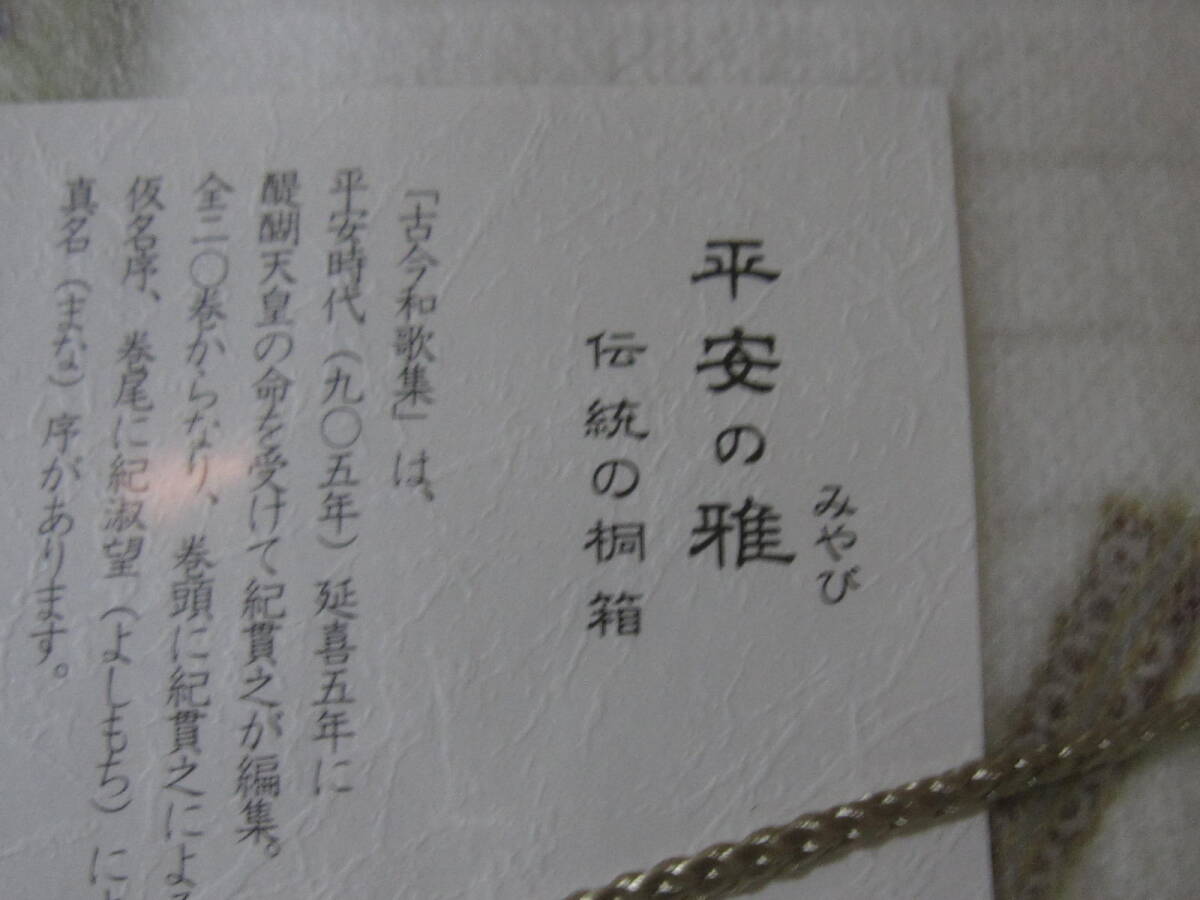 平安の雅
みやび
伝統の桐箱
「古今和歌集」は、
平安時代（九〇五年）延喜五年に
醍醐天皇の命を受けて紀貫之が編集。
全二〇巻からなり、巻頭に紀貫之による
仮名序、巻尾に紀淑望（よしもち）に
真名（まな）序があります。